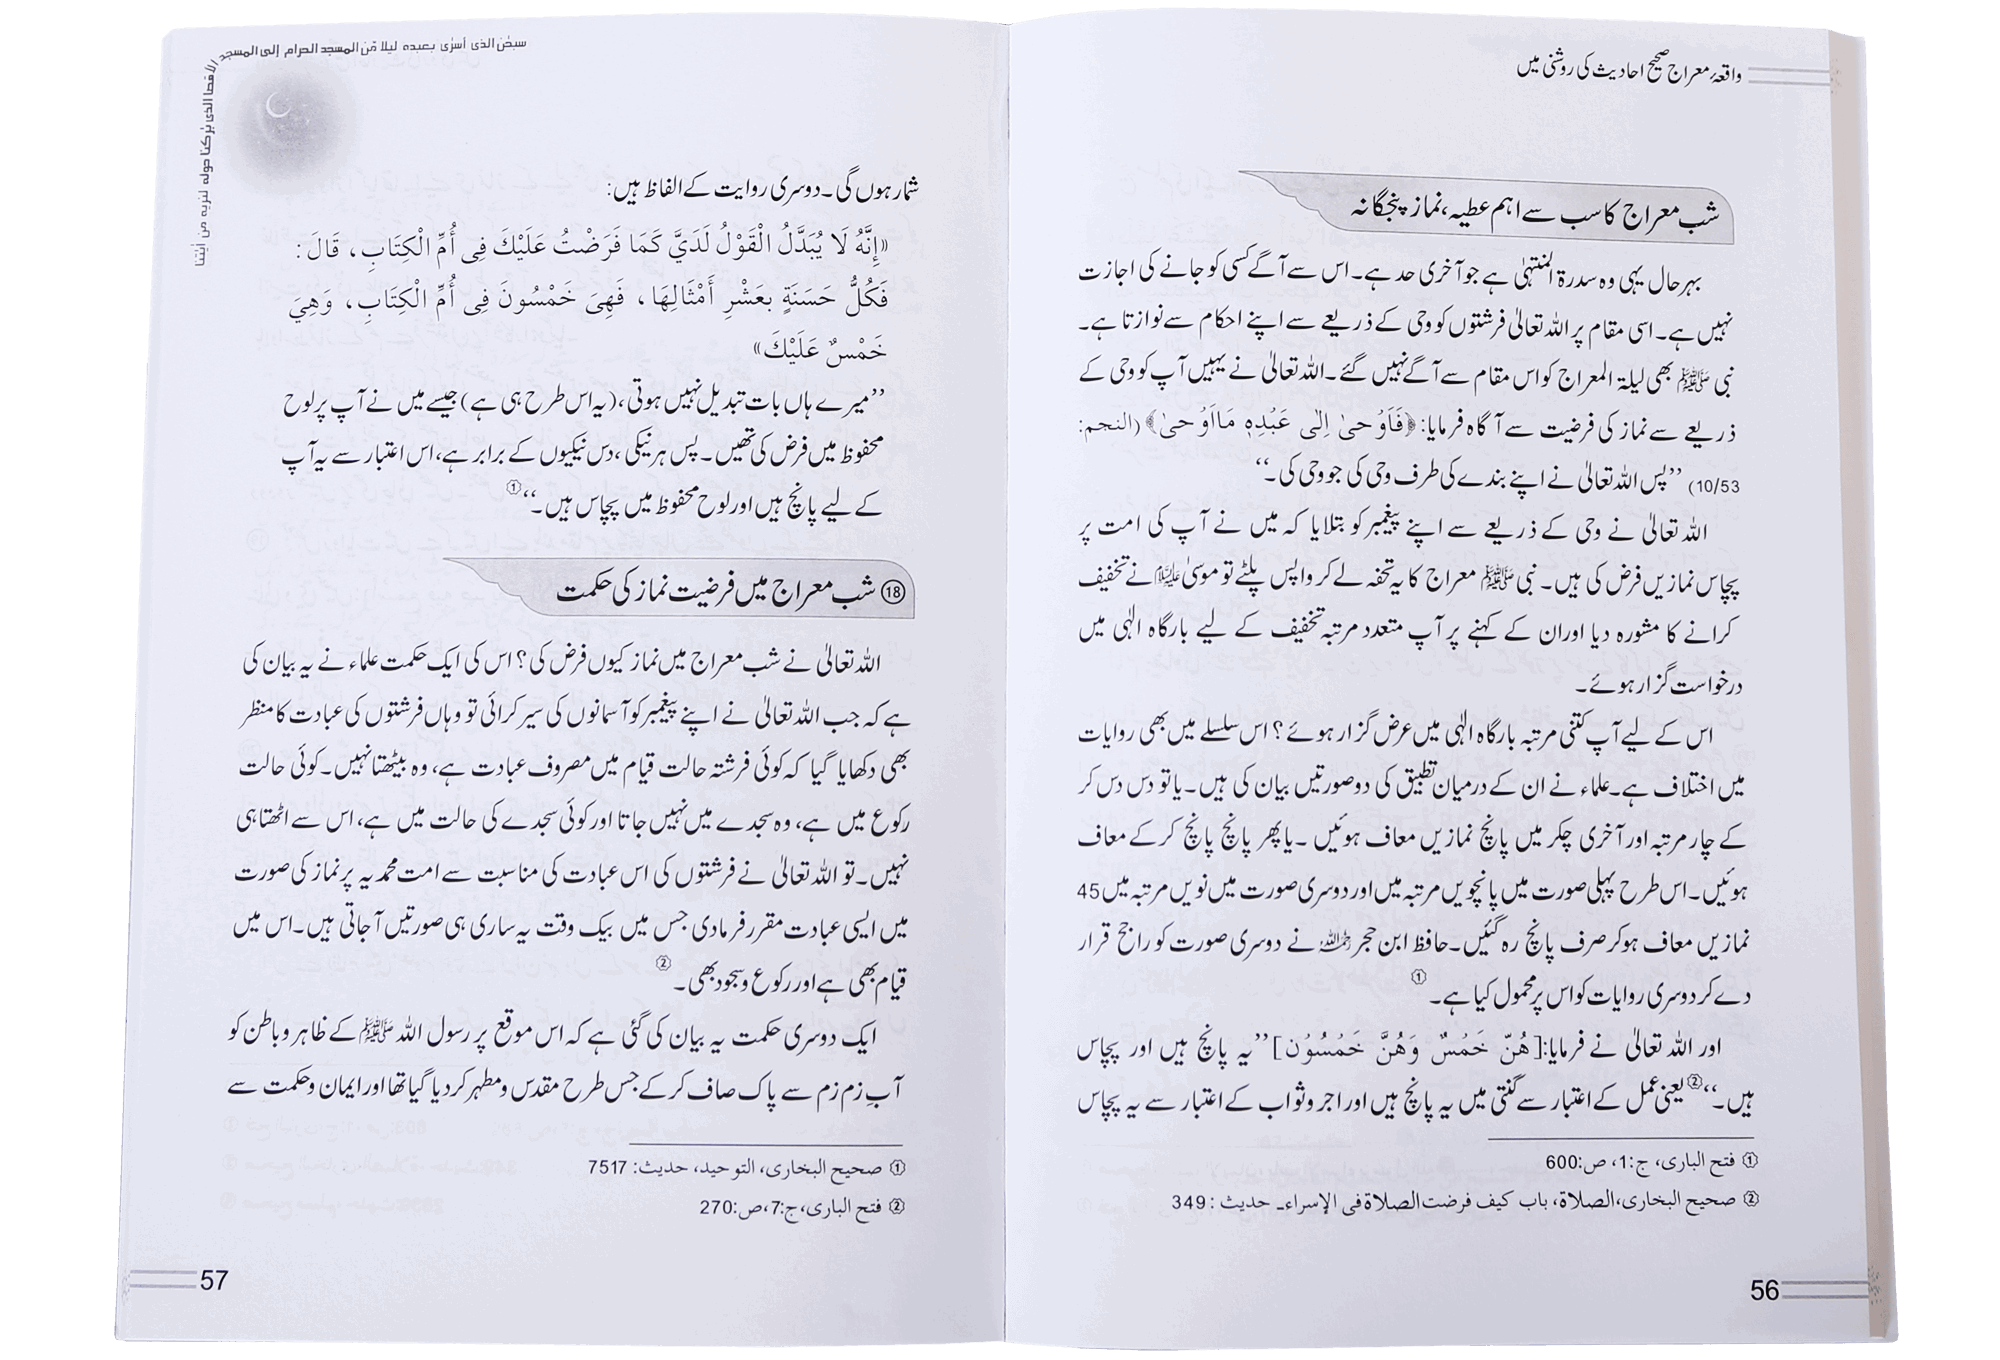 واقعۂ معراج صحیح احادیث کی روشنی میں
شب معراج کا سب سے اہم عطیہ، نماز پنجگانہ
بہرحال یہی وہ سدرۃ المنتہیٰ ہے جو آخری حد ہے۔ اس سے آگے کسی کو جانے کی اجازت
نہیں ہے۔ اسی مقام پر اللہ تعالیٰ فرشتوں کو وحی کے ذریعے سے اپنے احکام سے نوازتا ہے۔
نبی ﷺ بھی لیلۃ المعراج کو اس مقام سے آگے نہیں گئے۔ اللہ تعالیٰ نے یہیں آپ کو وحی کے
ذریعے سے نماز کی فرضیت سے آگاہ فرمایا: ﴿فَاَوْحیٰ اِلٰی عَبْدِہٖ مَااَوْحیٰ﴾ (النجم:
10/53) ’’پس اللہ تعالیٰ نے اپنے بندے کی طرف وحی کی جو وحی کی۔‘‘
اللہ تعالیٰ نے وحی کے ذریعے سے اپنے پیغمبر کو بتلایا کہ میں نے آپ کی امت پر
پچاس نمازیں فرض کی ہیں۔ نبی ﷺ معراج کا یہ تحفہ لے کر واپس پلٹے تو موسیٰ علیہ السلام نے تخفیف
کرانے کا مشورہ دیا اور ان کے کہنے پر آپ متعدد مرتبہ تخفیف کے لیے بارگاہ الٰہی میں
درخواست گزار ہوئے۔
اس کے لیے آپ کتنی مرتبہ بارگاہ الٰہی میں عرض گزار ہوئے؟ اس سلسلے میں بھی روایات
میں اختلاف ہے۔ علماء نے ان کے درمیان تطبیق کی دو صورتیں بیان کی ہیں۔ یا تو دس دس کر
کے چار مرتبہ اور آخری چکر میں پانچ نمازیں معاف ہوئیں۔ یا پھر پانچ پانچ کر کے معاف
ہوئیں۔ اس طرح پہلی صورت میں پانچویں مرتبہ میں اور دوسری صورت میں نویں مرتبہ میں 45
نمازیں معاف ہو کر صرف پانچ رہ گئیں۔ حافظ ابن حجر رحمہ اللہ نے دوسری صورت کو راجح قرار
دے کر دوسری روایات کو اس پر محمول کیا ہے۔ ①
اور اللہ تعالیٰ نے فرمایا: [ھُنَّ خَمْسٌ وَھُنَّ خَمْسُوْن] ’’یہ پانچ ہیں اور پچاس
ہیں۔‘‘② یعنی عمل کے اعتبار سے گنتی میں یہ پانچ ہیں اور اجر و ثواب کے اعتبار سے یہ پچاس
① فتح الباری، ج:1، ص:600
② صحیح البخاری، الصلاۃ، باب کیف فرضت الصلاۃ فی الإسراء۔ حدیث : 349
56
سبحٰن الذی أسرٰی بعبدہ لیلا مّن المسجد الحرام إلی المسجد الأقصا الذی بٰرکنا حولہ لنریہ من اٰیٰتنا
شمار ہوں گی۔ دوسری روایت کے الفاظ ہیں:
«إِنَّهُ لَا يُبَدَّلُ الْقَوْلُ لَدَيَّ كَمَا فَرَضْتُ عَلَيْكَ فِی أُمِّ الْكِتَابِ، قَالَ:
فَكُلُّ حَسَنَةٍ بِعَشْرِ أَمْثَالِهَا، فَهِیَ خَمْسُونَ فِی أُمِّ الْكِتَابِ، وَهِيَ
خَمْسٌ عَلَيْكَ»
’’میرے ہاں بات تبدیل نہیں ہوتی، (یہ اس طرح ہی ہے) جیسے میں نے آپ پر لوح
محفوظ میں فرض کی تھیں۔ پس ہر نیکی، دس نیکیوں کے برابر ہے، اس اعتبار سے یہ آپ
کے لیے پانچ ہیں اور لوح محفوظ میں پچاس ہیں۔‘‘①
⑱ شب معراج میں فرضیت نماز کی حکمت
اللہ تعالیٰ نے شب معراج میں نماز کیوں فرض کی؟ اس کی ایک حکمت علماء نے یہ بیان کی
ہے کہ جب اللہ تعالیٰ نے اپنے پیغمبر کو آسمانوں کی سیر کرائی تو وہاں فرشتوں کی عبادت کا منظر
بھی دکھایا گیا کہ کوئی فرشتہ حالت قیام میں مصروف عبادت ہے، وہ بیٹھتا نہیں۔ کوئی حالت
رکوع میں ہے، وہ سجدے میں نہیں جاتا اور کوئی سجدے کی حالت میں ہے، اس سے اٹھتا ہی
نہیں۔ تو اللہ تعالیٰ نے فرشتوں کی اس عبادت کی مناسبت سے امت محمدیہ پر نماز کی صورت
میں ایسی عبادت مقرر فرمادی جس میں بیک وقت یہ ساری ہی صورتیں آجاتی ہیں۔ اس میں
قیام بھی ہے اور رکوع و سجود بھی۔ ②
ایک دوسری حکمت یہ بیان کی گئی ہے کہ اس موقع پر رسول اللہ ﷺ کے ظاہر و باطن کو
آبِ زم زم سے پاک صاف کر کے جس طرح مقدس و مطہر کر دیا گیا تھا اور ایمان و حکمت سے
① صحیح البخاری، التوحید، حدیث: 7517
② فتح الباری، ج:7، ص:270
57